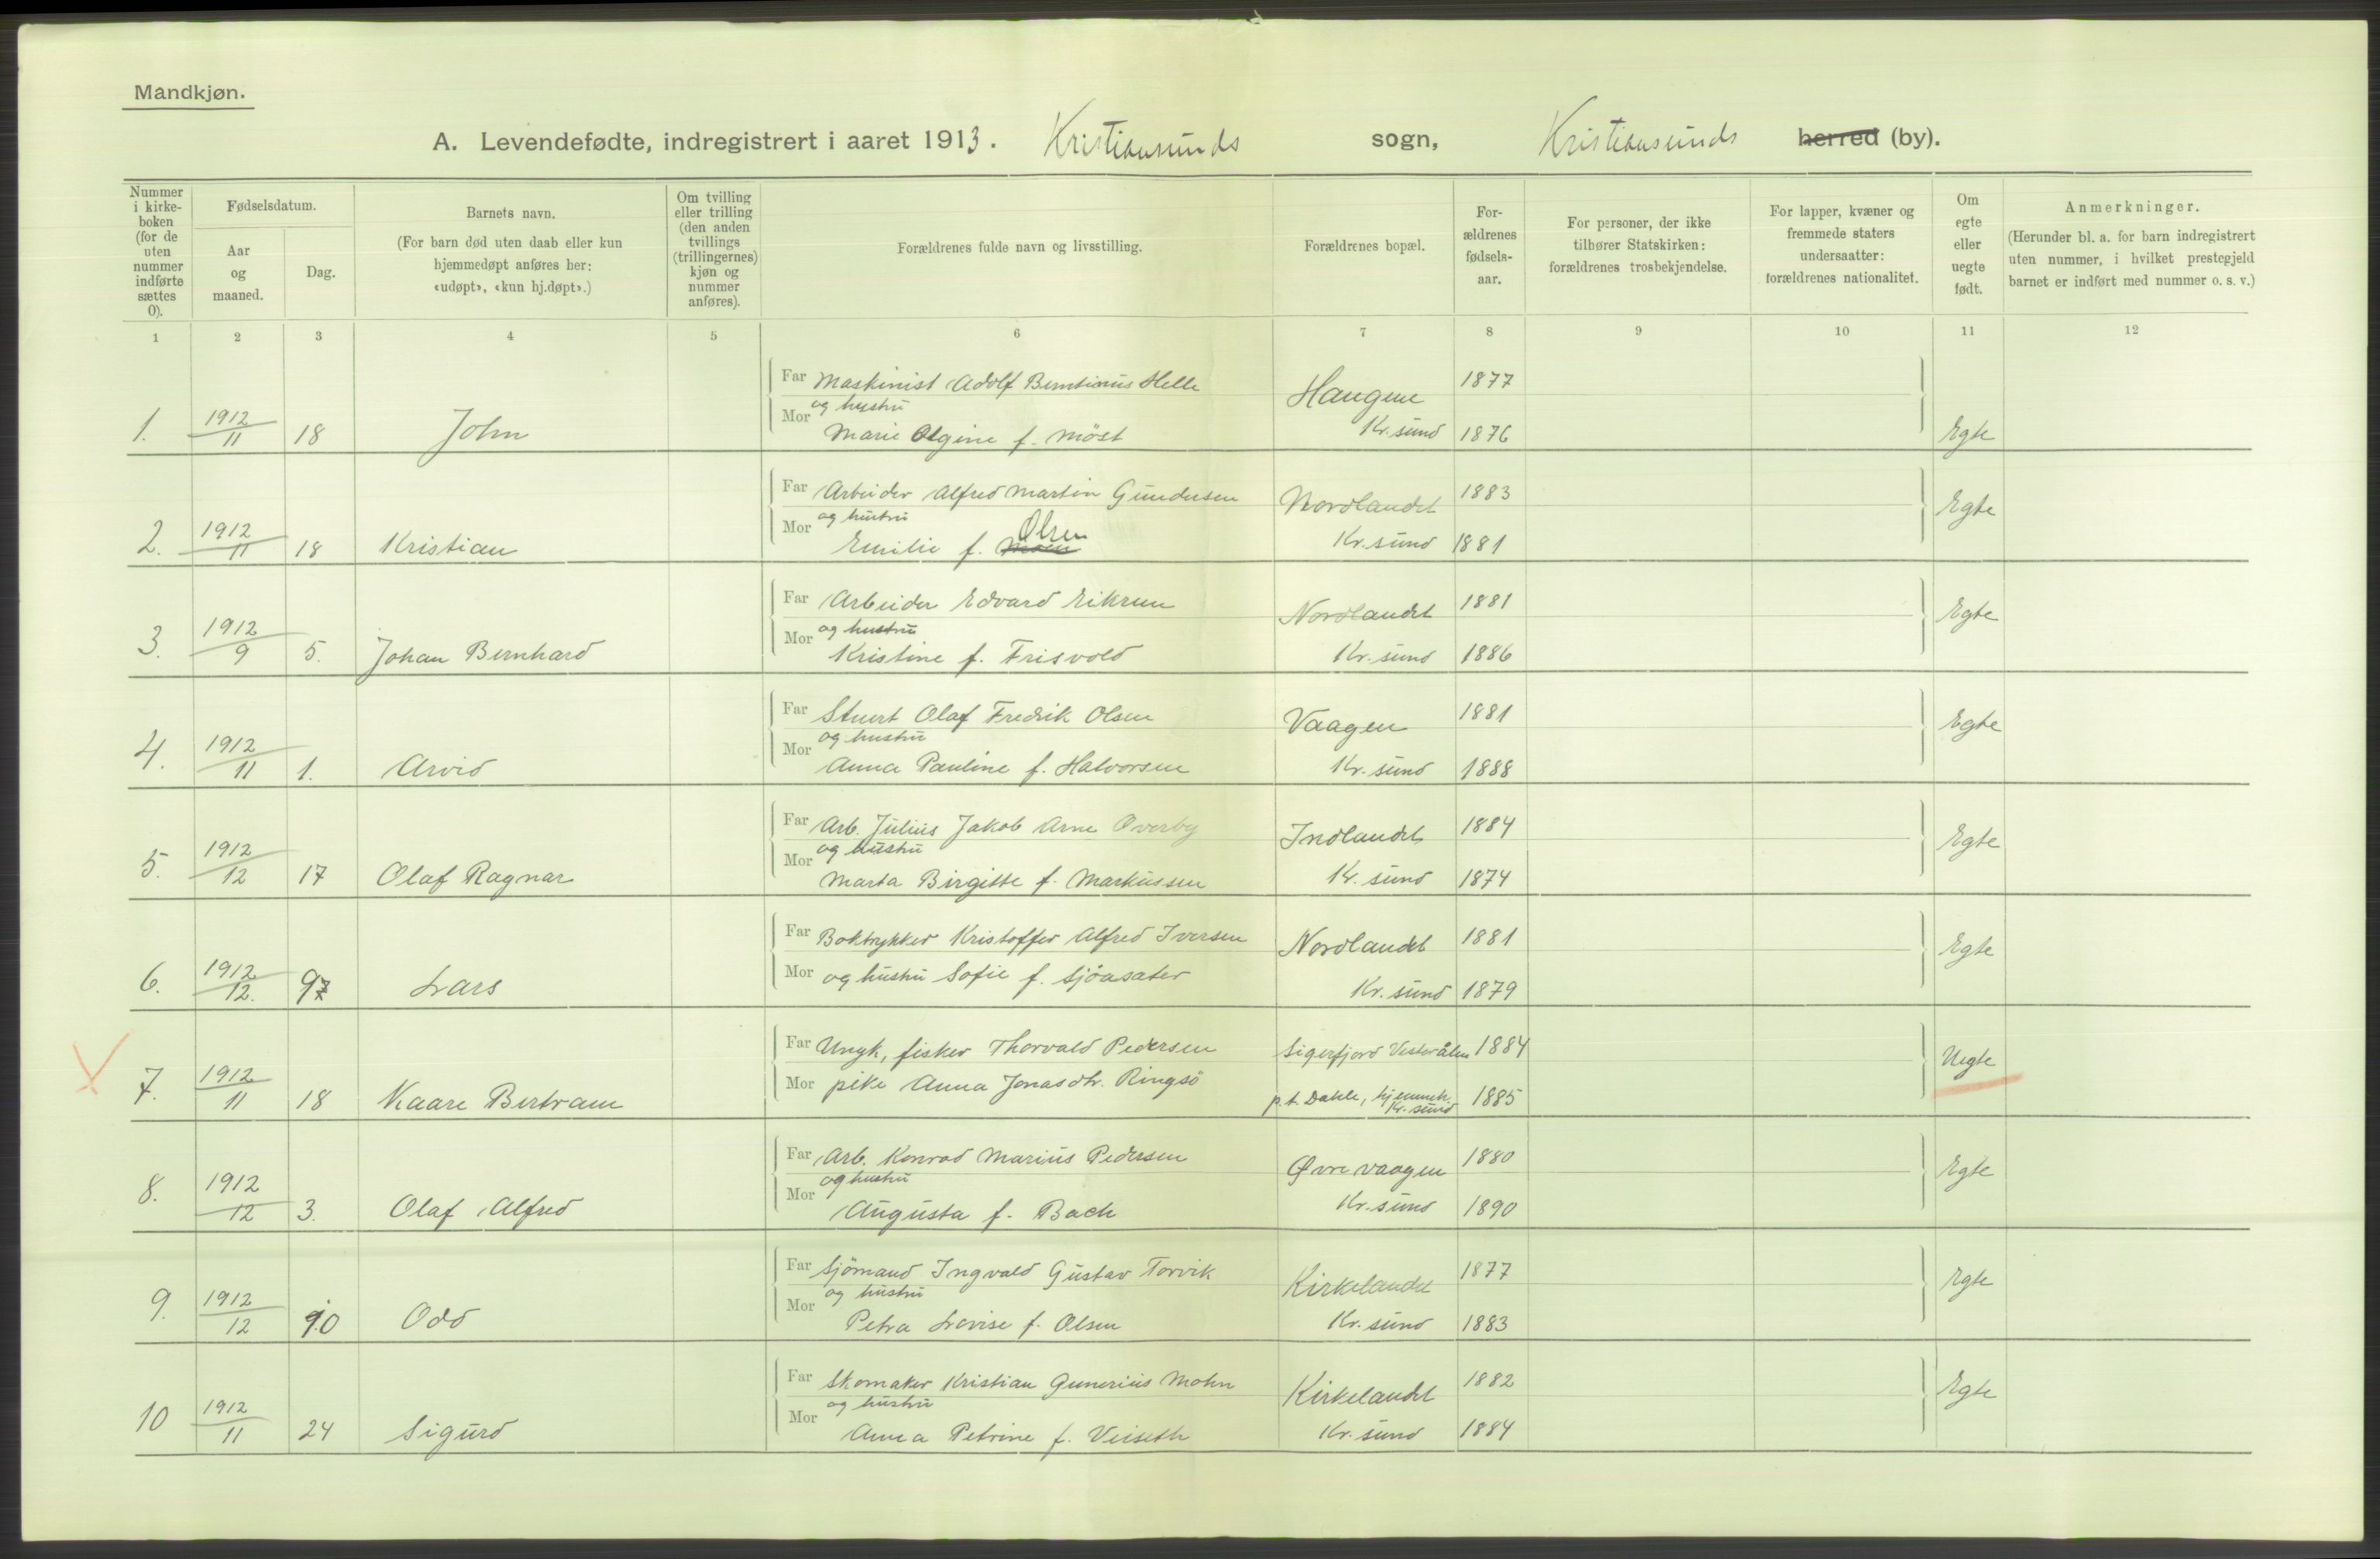 Mandkjøn.
A. Levendefødte, indregistrert i aaret 1913. Kristiansunds sogn, Kristiansunds herred (by).
Nummer i kirkeboken (for de uten nummer indførte sættes 0).
Fødselsdatum.
Aar og maaned.
Dag.
Barnets navn.
(For barn død uten daab eller kun hjemmedøpt anføres her: «udøpt», «kun hj.døpt».)
Om tvilling eller trilling (den anden tvillings (trillingernes) kjøn og nummer anføres).
Forældrenes fulde navn og livsstilling.
Forældrenes bopæl.
Forældrenes fødselsaar.
For personer, der ikke tilhører Statskirken: forældrenes trosbekjendelse.
For lapper, kvæner og fremmede staters undersaatter: forældrenes nationalitet.
Om egte eller uegte født.
Anmerkninger.
(Herunder bl. a. for barn indregistrert uten nummer, i hvilket prestegjeld barnet er indført med nummer o. s. v.)
1 2 3 4 5 6 7 8 9 10 11 12
Far Maskinist Adolf Berntinus Helle Haugene 1877
og hustru
1. 1912/11 18 John Mor Marie Olgine f. Möst Kr.sund 1876 Egte
Far Arbeider Alfred Martin Gundersen Nordlandet 1883 Egte
og hustru
2. 1912/11 18 Kristian Mor Emilie f. Moen Olsen Kr.sund 1881
Far Arbeider Edvard Eikrem Nordlandet 1881 Egte
og hustru
3. 1912/9 5. Johan Bernhard Mor Kristine f. Frisvold Kr.sund 1886
Far Stuert Olaf Fredrik Olsen Vaagen 1881 Egte
og hustru
4. 1912/11 1. Arvid Mor Anna Pauline f. Halvorsen Kr.sund 1888
Far Arb. Julius Jakob Arne Överby Indlandet 1884 Egte
og hustru
5. 1912/12 17 Olaf Ragnar Mor Marta Birgitte f. Markussen Kr.sund 1874
Far Boktrykker Kristoffer Alfred Iversen Nordlandet 1881 Egte
6. 1912/12. 97 Lars Mor og hustru Sofie f. Sjöasæter Kr.sund 1879
Far Ungk, fisker Thorvald Pedersen Sigerfjord Vesterålen 1884 Uegte
7. 1912/11 18 Kaare Bertram Mor pike Anna Jonasdtr. Ringsö p.t. Dahle, hjemmeh. Kr.sund 1885
Far Arb. Konrad Marius Pedersen Øvre vaagen 1880 Egte
og hustru
8. 1912/12 3. Olaf Alfred Mor Augusta f. Bach Kr.sund 1890
Far Sjömand Ingvald Gustav Torvik Kirkelandet 1877 Egte
og hustru
9. 1912/12 10 Odd Mor Petra Lovise f. Olsen Kr.sund 1883
Far Skomaker Kristian Gunerius Mohn Kirkelandet 1882 Egte
og hustru
10 1912/11 24 Sigurd Mor Anna Petrine f. Veiseth Kr.sund 1884